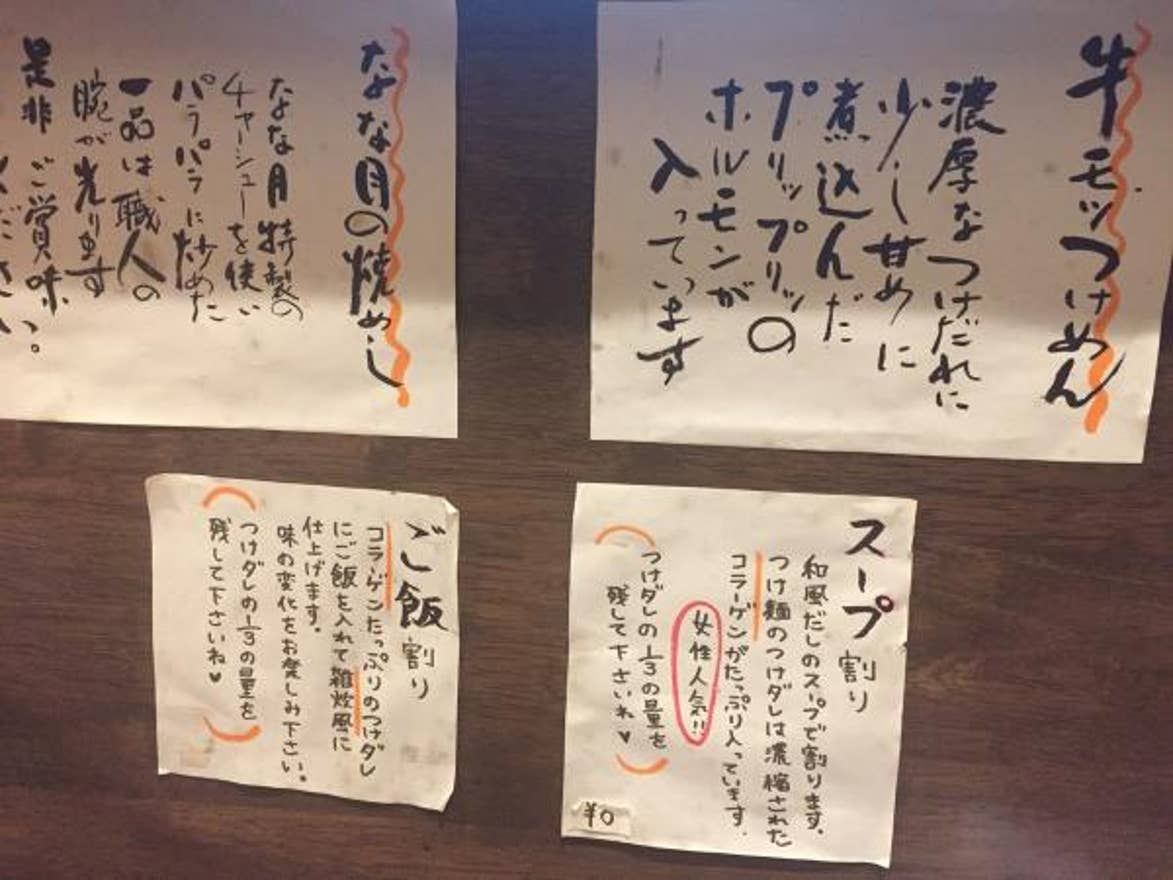 牛モツつけめん
濃厚なつけだれに
少し甘めに
煮込んだ
プリップリッの
ホルモンが
入っています
なな月の焼めし
なな月特製の
チャーシューを使い
パラパラに炒めた
一品は職人の
腕が光ります
是非ご賞味
ください。
スープ割り
和風だしのスープで割ります。
つけ麺のつけダレは濃縮された
コラーゲンがたっぷり入っています。
女性人気!!
つけダレの1/3の量を
残して下さいね♥
¥0
ご飯割り
コラーゲンたっぷりのつけダレ
にご飯を入れて雑炊風に
仕上げます。
味の変化をお楽しみ下さい。
つけダレの1/3の量を
残して下さいね♥